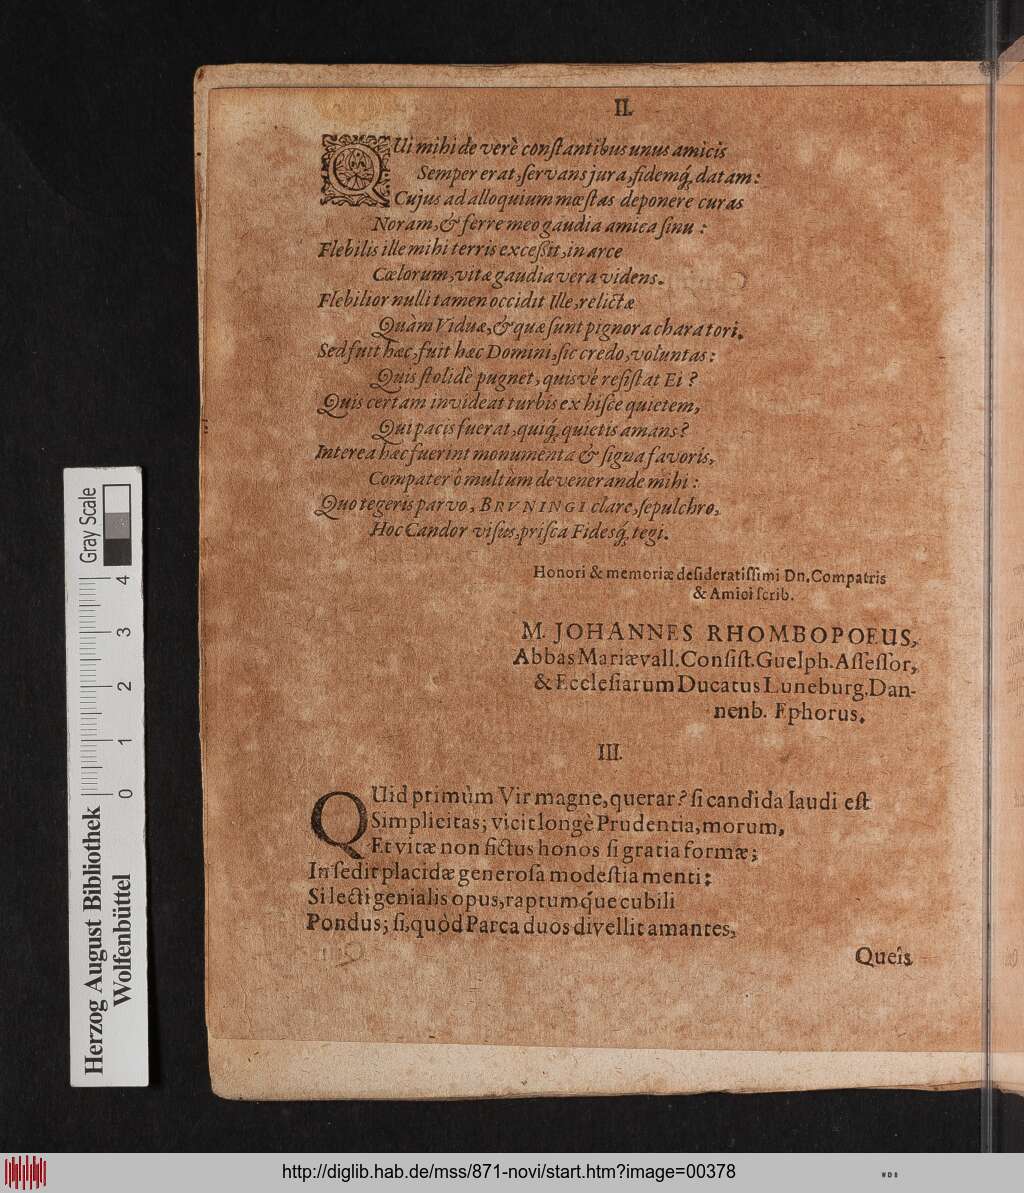 II.
QUi mihi de verè conſtantibus unus amicis
Semper erat, ſervans jura, fidemq́; datam:
Cujus ad alloquium mœſtas deponere curas
Noram, & ferre meo gaudia amica ſinu:
Flebilis ille mihi terris exceßit, in arce
Cœlorum, vitæ gaudia vera videns.
Flebilior nulli tamen occidit Ille, relictæ
Quàm Viduæ, & quæ ſunt pignora chara tori.
Sed fuit hæc, fuit hæc Domini, ſic credo, voluntas:
Quis ſtolidè pugnet, quisvè reſiſtat Ei?
Quis certam invideat turbis ex hiſce quietem,
Qui pacis fuerat, quiq́; quietis amans?
Interea hæc fuerint monumenta & ſigna favoris,
Compater ô multùm devenerande mihi:
Quo tegeris parvo, BRVNINGI clare, ſepulchro,
Hoc Candor viſus, priſca Fidesq́; tegi.
Honori & memoriæ deſideratiſſimi Dn. Compatris
& Amici ſcrib.
M. JOHANNES RHOMBOPOEUS,
Abbas Mariævall. Conſiſt. Guelph. Aſſeſſor,
& Eccleſiarum Ducatus Luneburg. Dan-
nenb. Ephorus.
III.
QUid primùm Vir magne, querar? ſi candida laudi eſt
Simplicitas; vicit longè Prudentia, morum,
Et vitæ non fictus honos ſi gratia formæ;
Inſedit placidæ generoſa modeſtia menti:
Si lecti genialis opus, raptumq́ue cubili
Pondus; ſi, quòd Parca duos divellit amantes,
Queîs
Herzog August Bibliothek
Wolfenbüttel
0 1 2 3 4
Gray Scale
http://diglib.hab.de/mss/871-novi/start.htm?image=00378
WDB